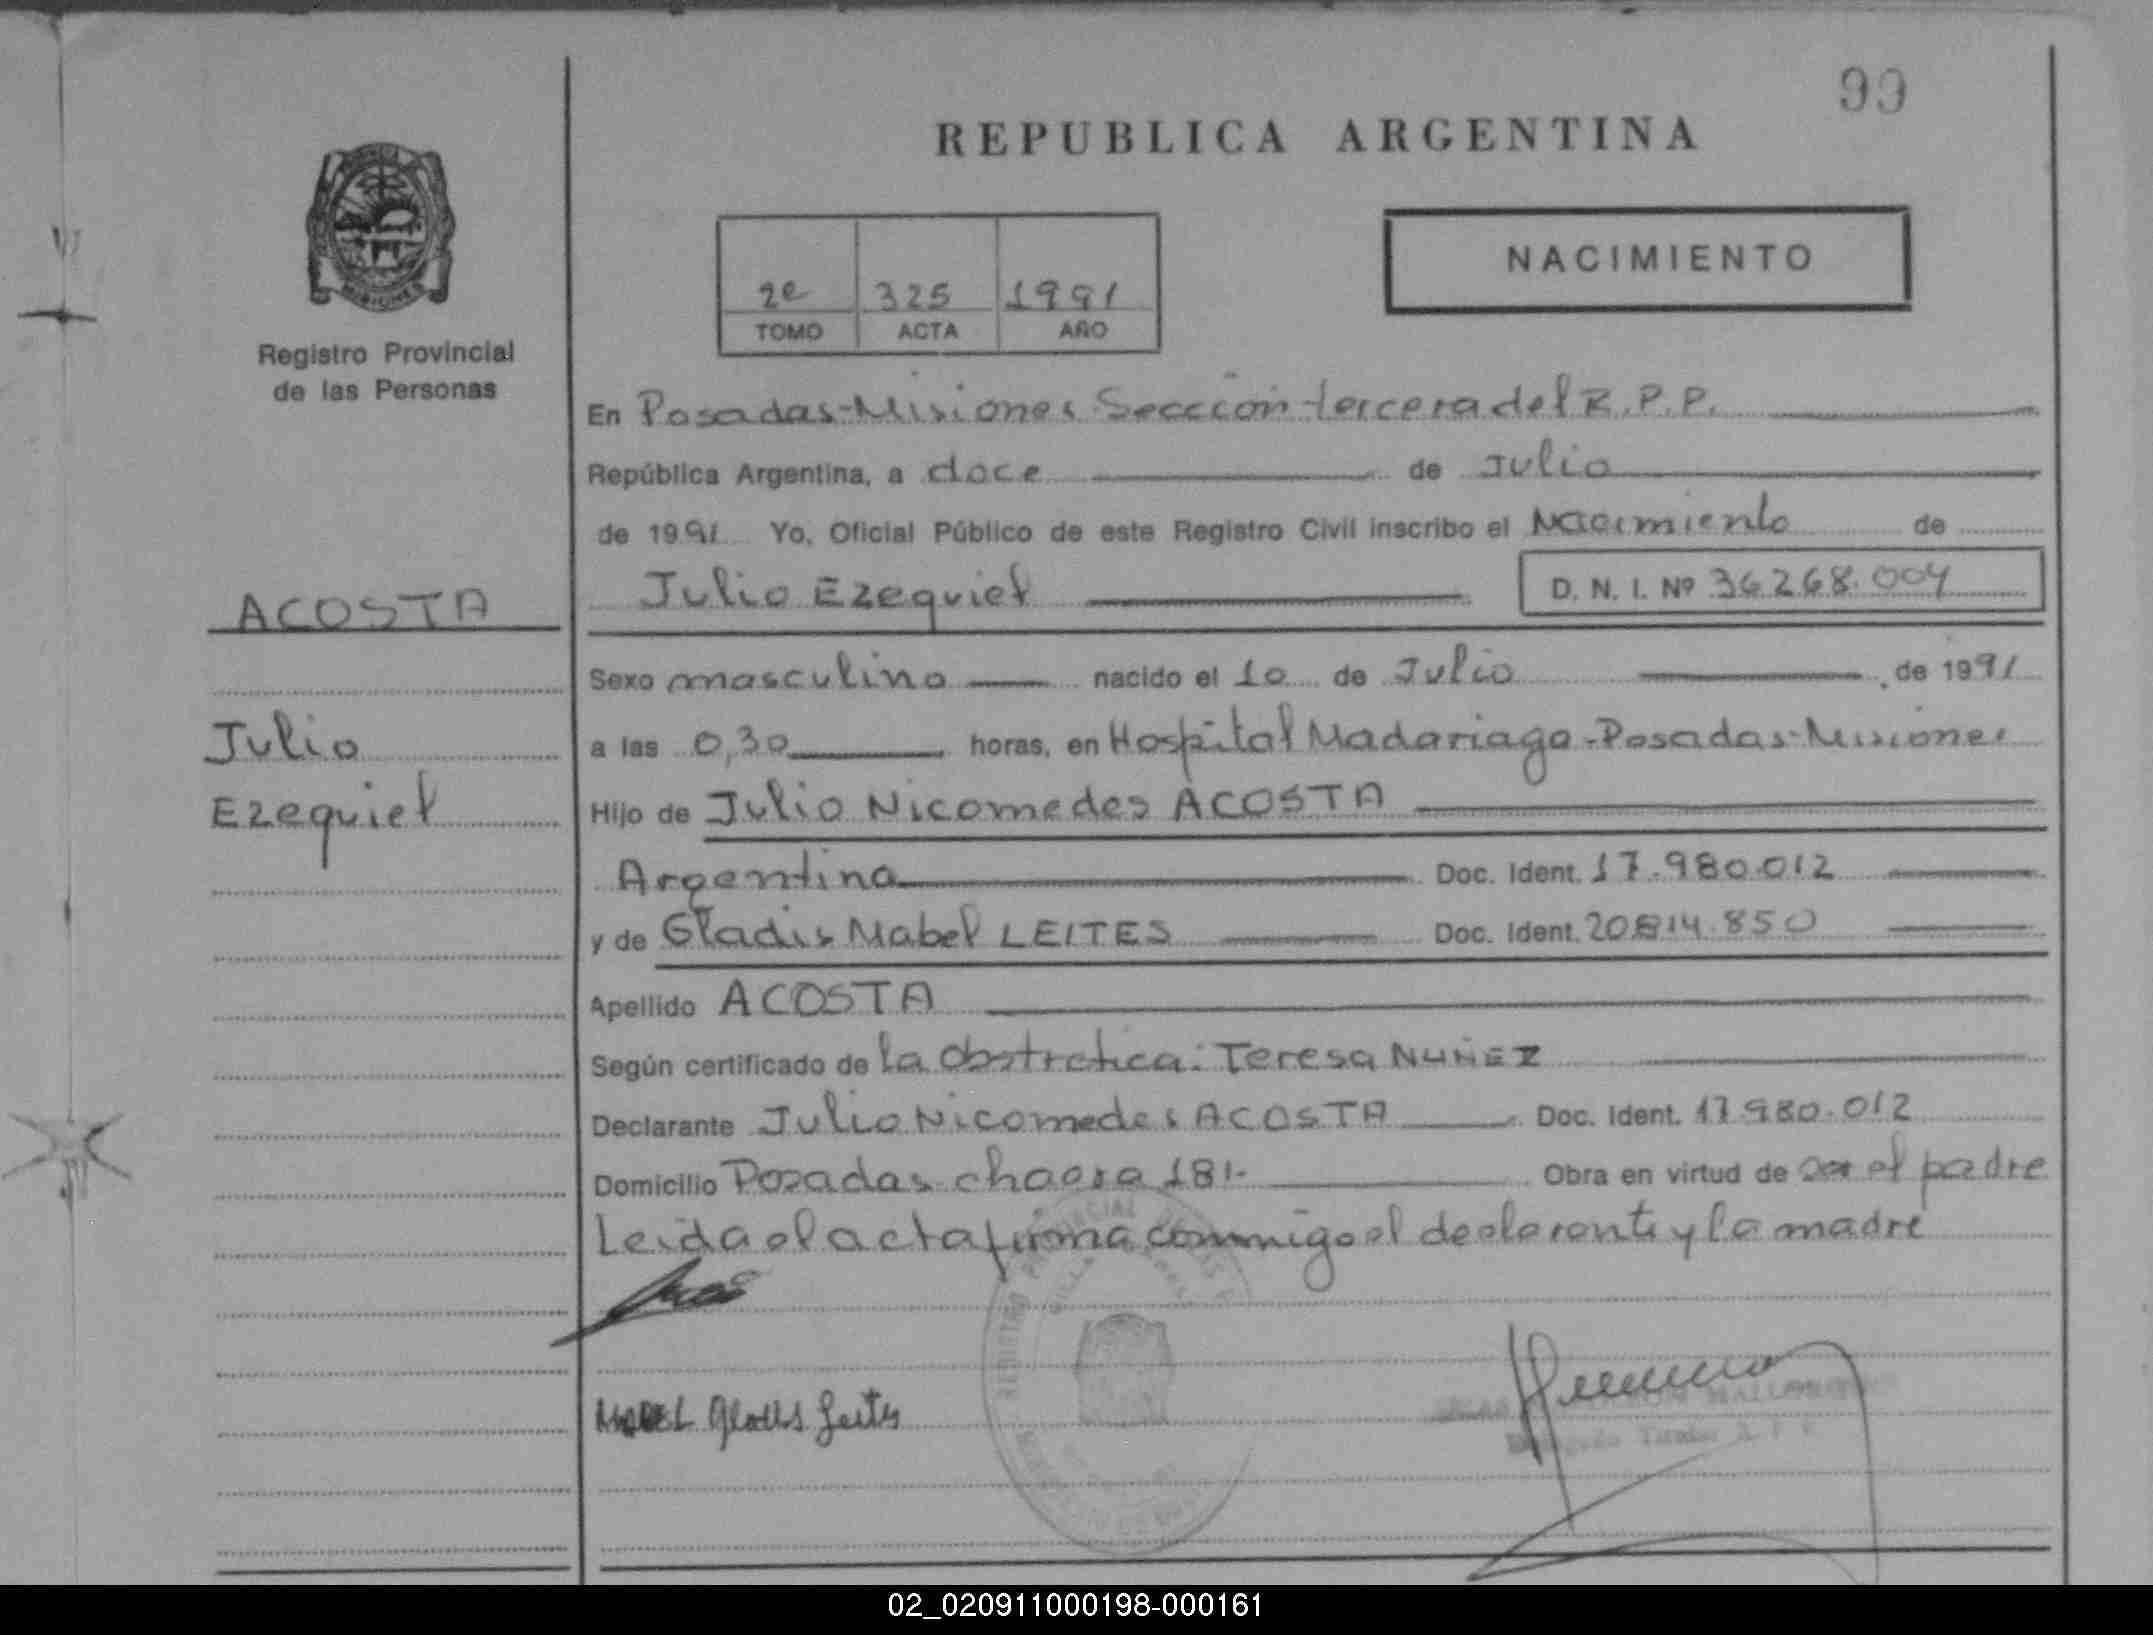 99
REPUBLICA ARGENTINA
MISIONES
Registro Provincial
de las Personas
2e 325 1991
TOMO ACTA AÑO
NACIMIENTO
En Posadas-Misiones Sección tercera del R.P.P.
República Argentina, a doce de Julio
de 1991 Yo, Oficial Público de este Registro Civil inscribo el Nacimiento de
ACOSTA
Julio Ezequiel D. N. I. Nº 36268.004
Sexo masculino nacido el 10 de Julio de 1991
Julio
a las 0,30 horas, en Hospital Madariaga-Posadas-Misiones
Ezequiel
Hijo de Julio Nicomedes ACOSTA
Argentina Doc. Ident. 17.980.012
y de Gladis Mabel LEITES Doc. Ident. 20814.850
Apellido ACOSTA
Según certificado de la Obstretica: Teresa NUÑEZ
Declarante Julio Nicomedes ACOSTA Doc. Ident. 17980.012
Domicilio Posadas chacra 181- Obra en virtud de ser el padre
Leida el acta firma conmigo el declarante y la madre
REGISTRO PROVINCIAL
02_020911000198-000161